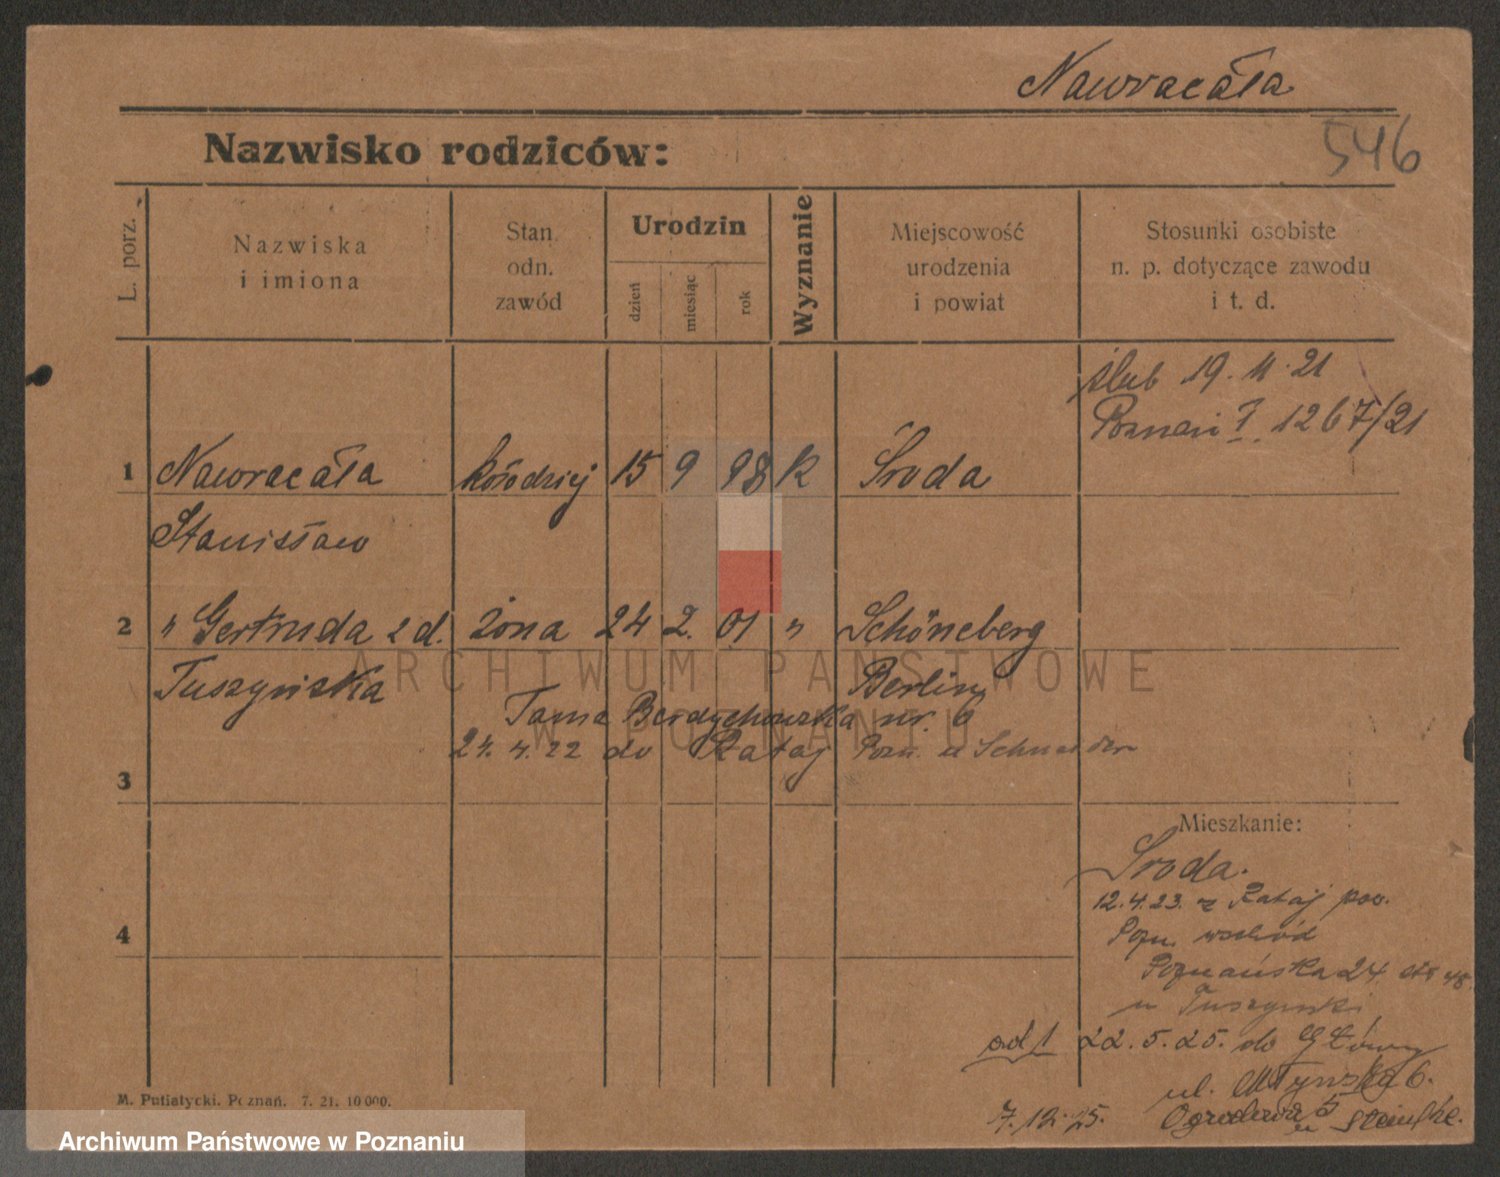 Nawracała
546
Nazwisko rodziców:
L. porz.
Nazwiska
i imiona
Stan.
odn.
zawód
Urodzin
dzień
miesiąc
rok
Wyznanie
Miejscowość
urodzenia
i powiat
Stosunki osobiste
n. p. dotyczące zawodu
i t. d.
ślub 19. 11. 21
Poznań I. 1267/21
1 Nawracała kołodziej 15 9 98 k Środa
Stanisław
2 " Gertruda z d. żona 24 2. 01 " Schöneberg
Tuszyńska Berlin
Tama Berdychowska nr. 6
24. 4. 22 do Rataj Pozn. u Schneider
3
Mieszkanie:
Środa.
12. 4. 23. z Rataj pow.
4
Pozn. wschód
Poznańska 24. 48.
u Tuszyński
od 1 22. 5. 25. do Główny
ul. Młyńska 6.
7. 12. 25. Ogrodowa 5
u
M. Putiatycki. Poznań. 7. 21. 10 000.
ARCHIWUM PAŃSTWOWE
W POZNANIU
Archiwum Państwowe w Poznaniu